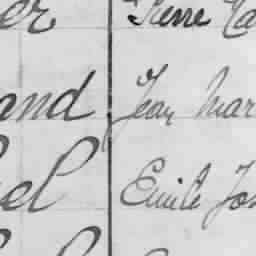 er Pierre
and Jean Mar
el Emile Jos